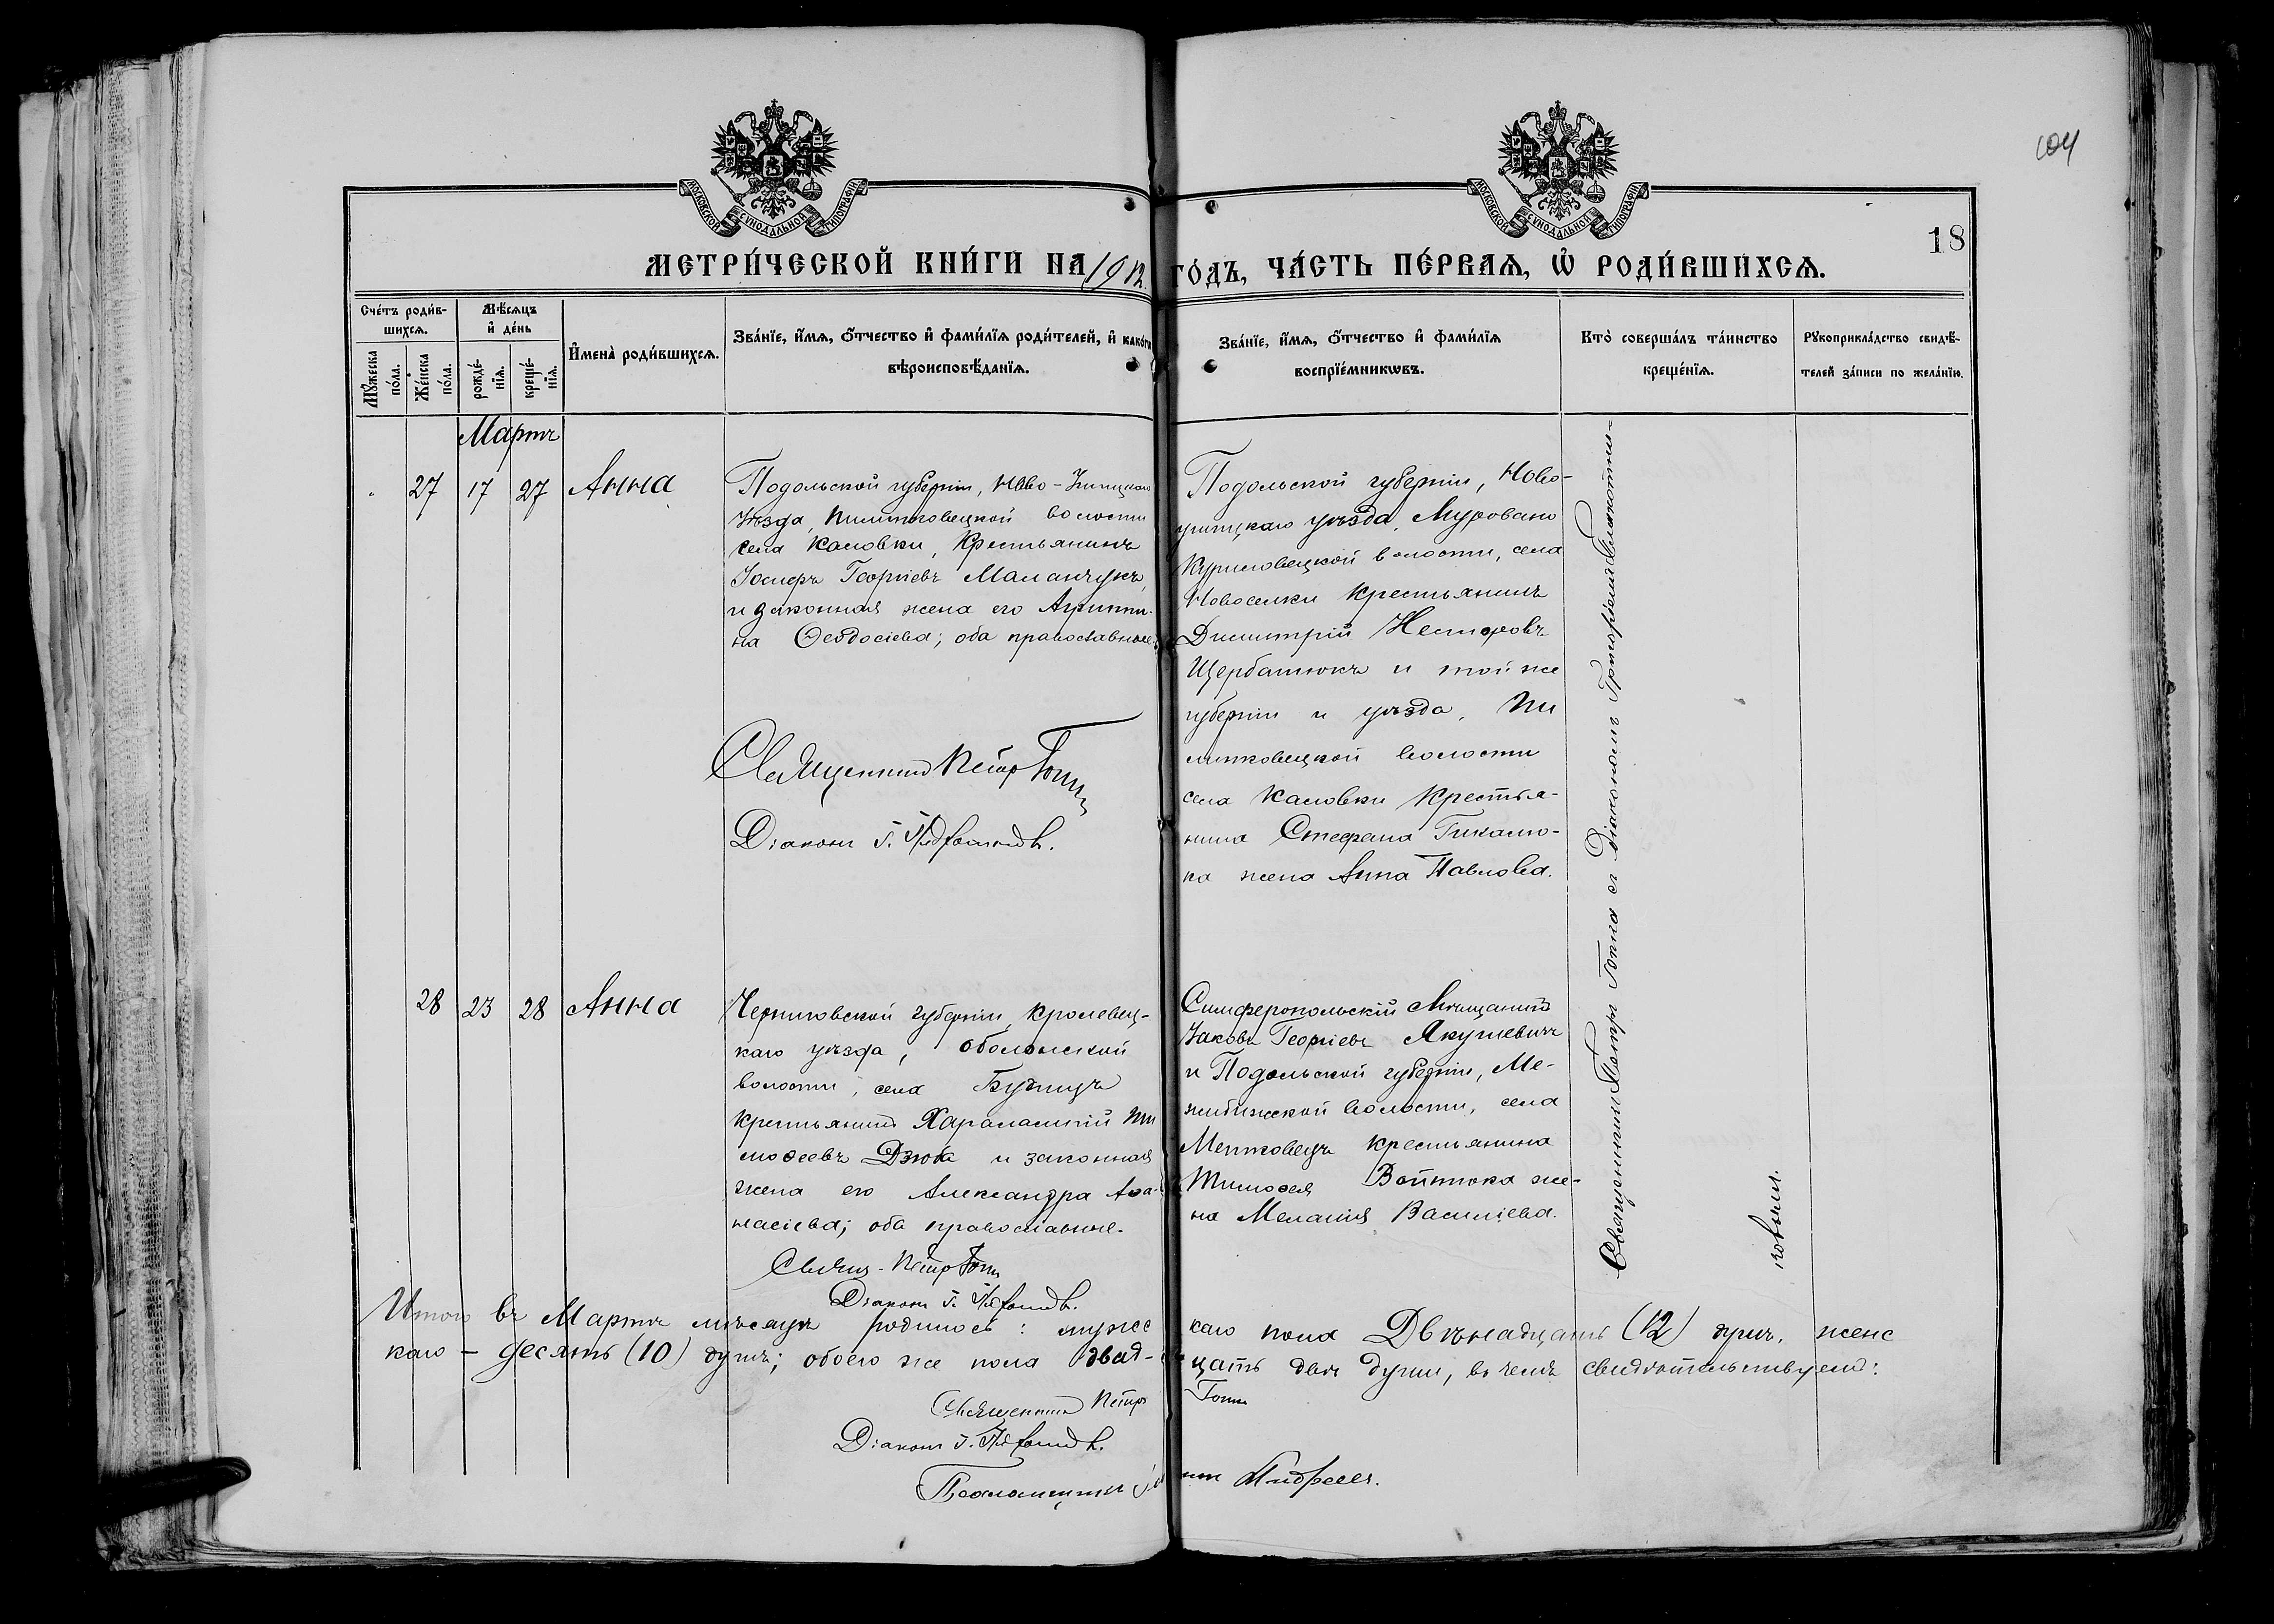 104
18
МОСКОВСКОЙ СѴНОДАЛЬНОЙ ТИПОГРАФІИ
МОСКОВСКОЙ СѴНОДАЛЬНОЙ ТИПОГРАФІИ
МЕТРИ́ЧЕСКОЙ КНИ́ГИ НА 1912 ГО́ДЪ, ЧА́СТЬ ПЕ́РВАЯ, Ѡ҆ РОДИ́ВШИХСЯ.
Сче́тъ роди́в-
шихся.
Мꙋ́жеска
по́ла.
Же́нска
по́ла.
Мѣ́сяцъ
и҆ де́нь
рожде́-
нїя.
креще́-
нїя.
И҆мена̀ роди́вшихся.
Зва́нїе, и҆́мя, ѻ҆́тчество и҆ фами́лїя роди́телей, и҆ како́гѡ
вѣроисповѣ́данїя.
Зва́нїе, и҆́мя, ѻ҆́тчество и҆ фами́лїя
воспрїе́мникѡвъ.
Кто̀ соверша́лъ та́инство
креще́нїя.
Рꙋкоприкла́дство свидѣ́-
телей за́писи по жела́нїю.
Мартъ
27 17 27 Анна
Подольской губерніи, Ново-Ушицкаго
Уѣзда, Пилипковецкой волости
села Каловки, Крестьянинъ
Іосифъ Георгіевъ Маланчукъ,
и законная жена его Агриппи-
на Ѳеодосіева; оба православные.
Священникъ Петръ
Діаконъ Г.
Подольской губерніи, Ново-
ушицкаго уѣзда, Мурованo
Куриловецкой волости, села
Новоселки крестьянинъ
Димитрій Несторовъ
Щербатюкъ и той же
губерніи и уѣзда, Пи
липковецкой волости
села Каловки крестья-
нина Стефана Гикалю-
ка жена Анна Павлова.
Священникъ Петръ съ Діакономъ Григоріемъ
ковымъ.
28 23 28 Анна
Черниговской губерніи, Кролевец-
каго уѣзда, Оболонской
волости, села Бужицъ
крестьянинъ Харалампій Ти
моѳеевъ Дзюба и законная
жена его Александра Аѳа-
насіева; оба православные.
Свящ. Петръ
Діаконъ Г.
Симферопольскій Мѣщанинъ
Іаковъ Георгіевъ Якушевичъ
и Подольской губерніи, Ме-
жибижской волости, села
Митковецъ крестьянина
Тимоѳея Войтюка же-
на Меланія Василіева.
Итого въ Мартѣ мѣсяцѣ родилось: мужес каго пола Двѣнадцать (12) душъ, женс
каго — десять (10) душъ; обоего же пола двад- цать двѣ души, въ чемъ свидѣтельствуемъ:
Священникъ Петръ
Діаконъ Г.
Псаломщикъ Андреевъ.